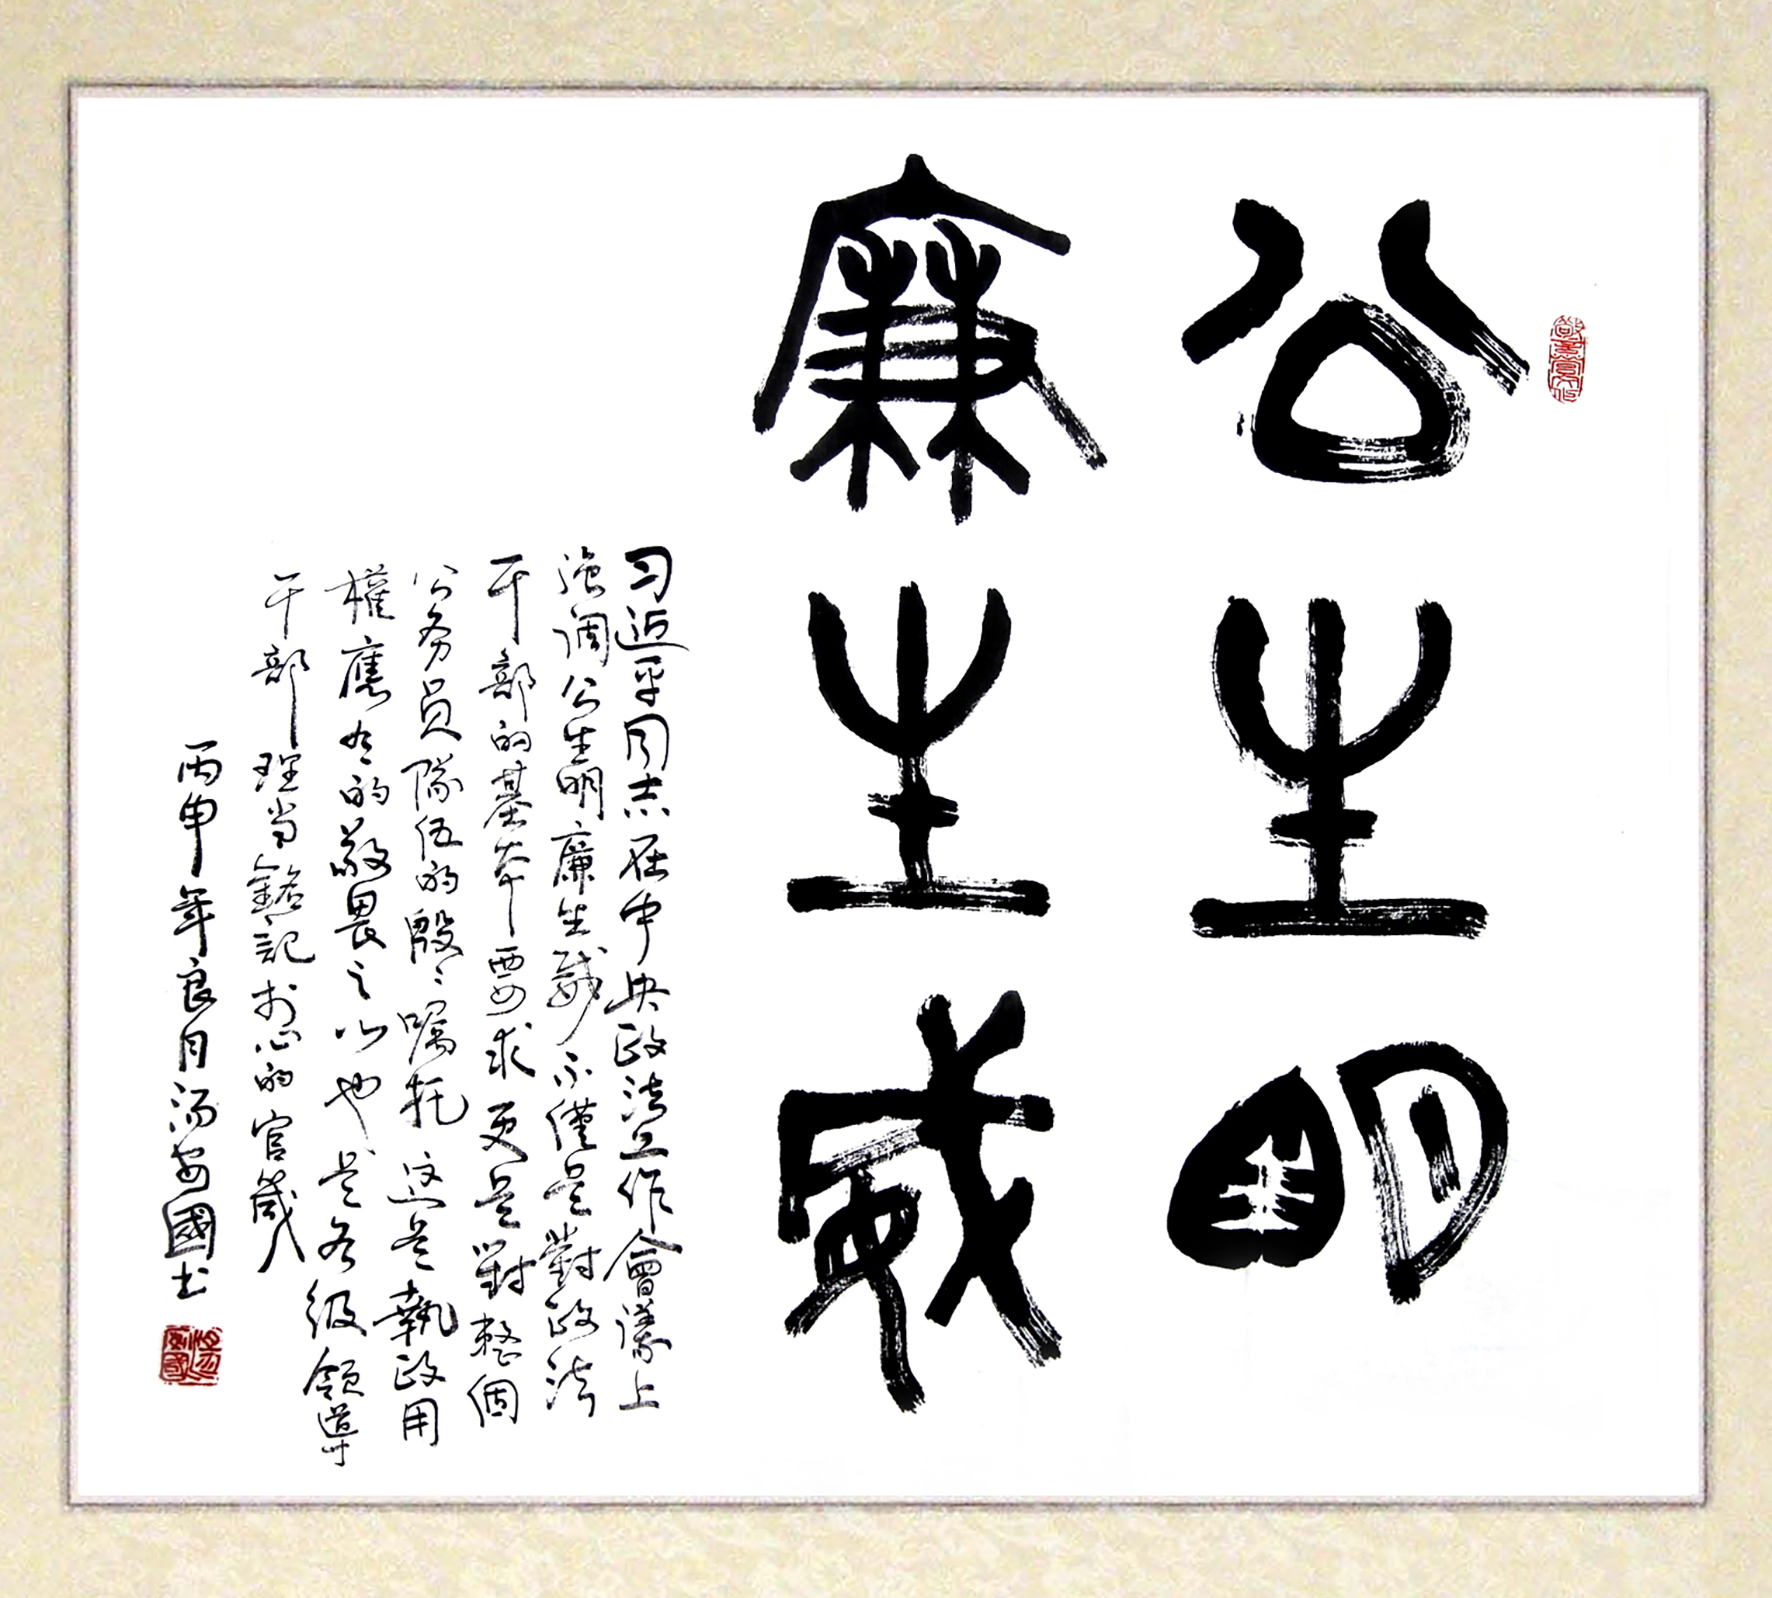 公生明
廉生威
习近平同志在中央政法工作會議上
强调公生明廉生威不僅是對政法
干部的基本要求更是對整個
公务员隊伍的殷〻嘱托这是執政用
權應有的敬畏之心也是各级領導
干部理当銘記於心的官箴
丙申年良月汤安國书